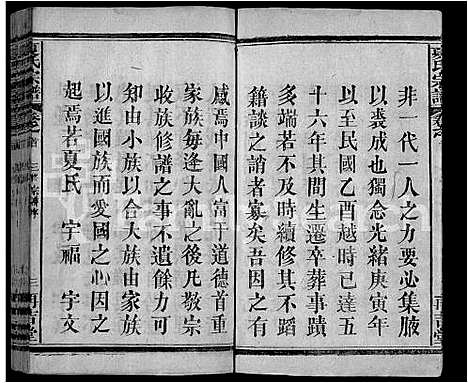 夏氏宗譜
非一代一人之力要必集腋
以裘成也獨念光緒庚寅年
以至民國乙酉越時已五
十六年其生遷卒葬事蹟
多端若不及時纂修其不蹈
籍談之誚者寡矣吾因之有
感焉中國人富于道德首重
家族每逢大亂之後凡敬宗
收族修譜之事不遺餘力可
知由小族以合大族由家族
以進國族而愛國之心因之
起焉若夏氏 宇福 宇文
夏氏宗譜